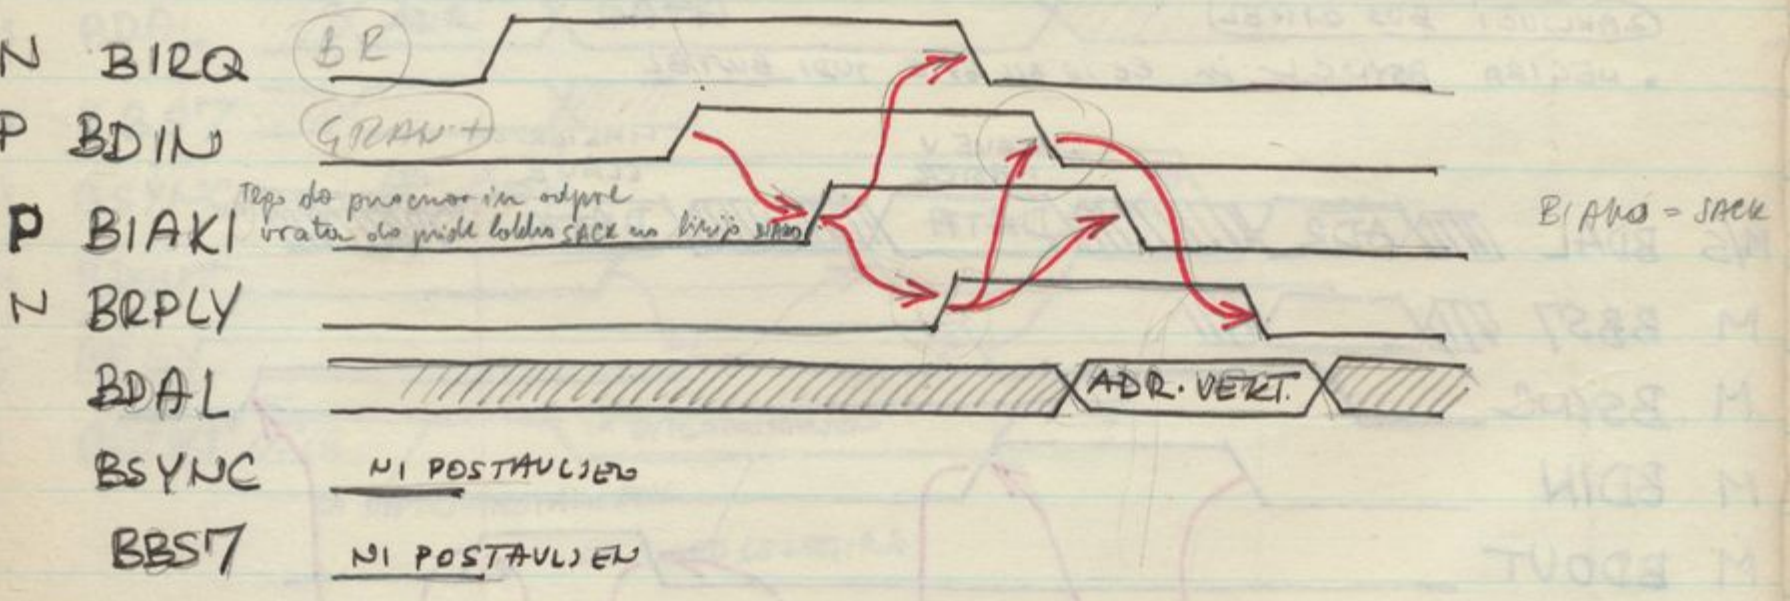 N BIRQ BR
P BDIN GRANT
P BIAKI Tega da procesor in odpre
vrata da pride lahko SACK na linijo BIAKO
BIAKO = SACK
N BRPLY
BDAL ADR. VEKT.
BSYNC NI POSTAVLJEN
BBS7 NI POSTAVLJEN